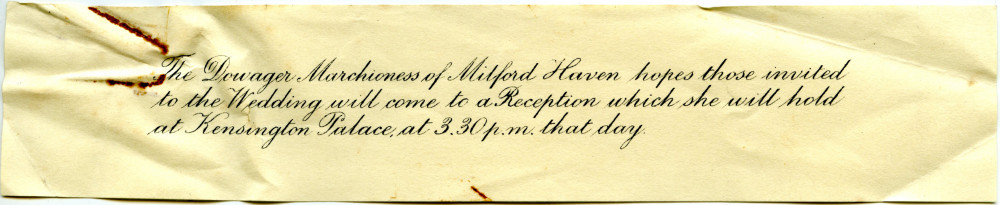 The Dowager Marchioness of Milford Haven hopes those invited
to the Wedding will come to a Reception which she will hold
at Kensington Palace, at 3.30 p.m. that day.